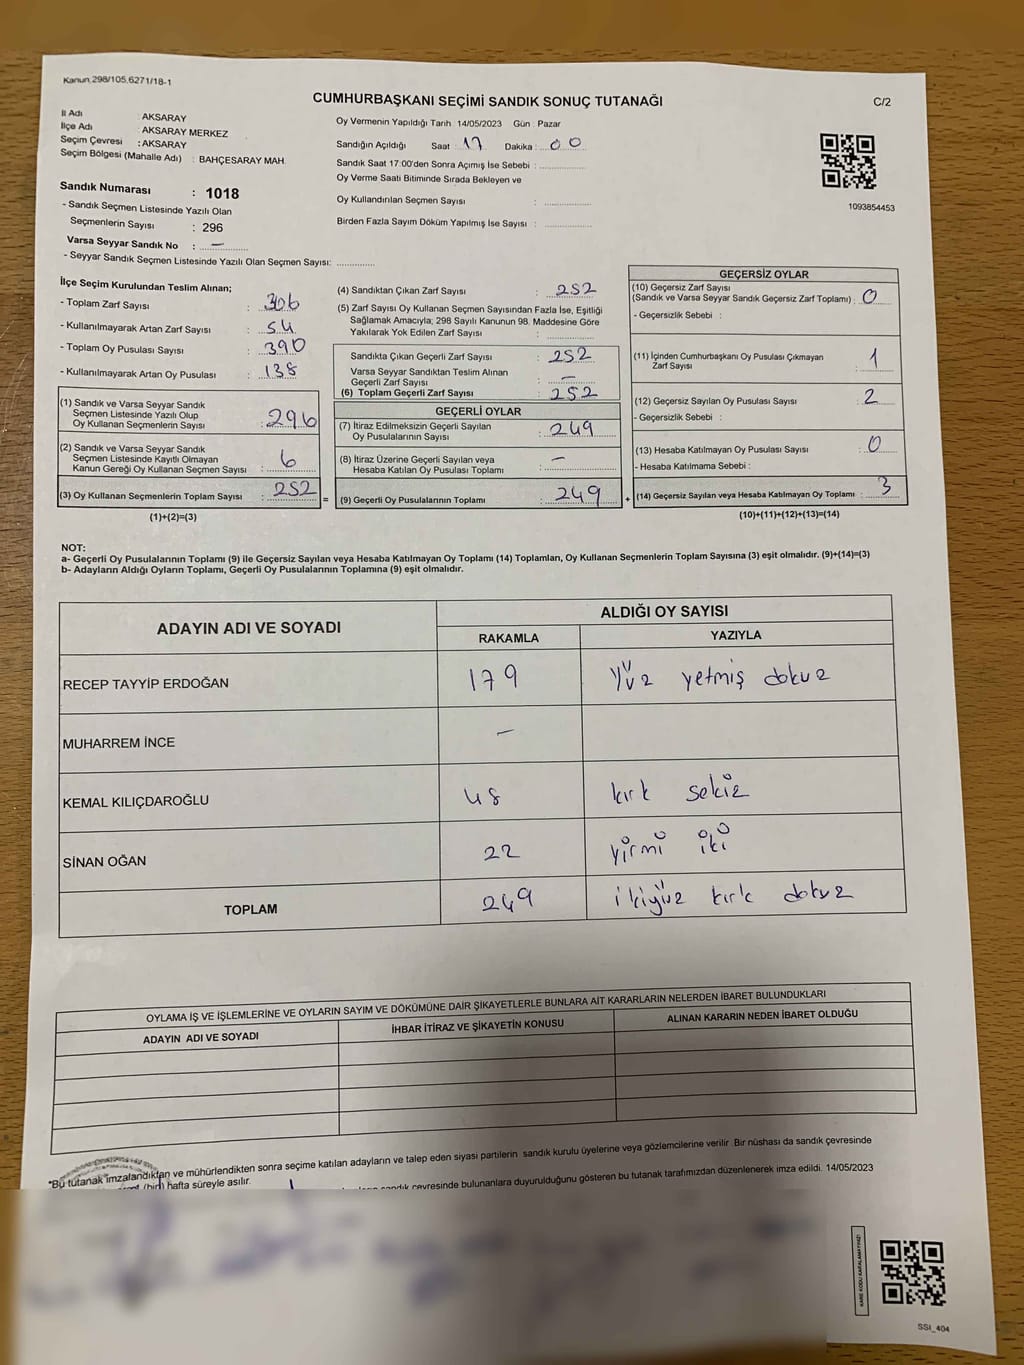 Kanun.298/105.6271/18-1
CUMHURBAŞKANI SEÇİMİ SANDIK SONUÇ TUTANAĞI
C/2
İl Adı : AKSARAY
İlçe Adı : AKSARAY MERKEZ
Seçim Çevresi : AKSARAY
Seçim Bölgesi (Mahalle Adı) : BAHÇESARAY MAH.
Sandık Numarası : 1018
- Sandık Seçmen Listesinde Yazılı Olan
Seçmenlerin Sayısı : 296
Varsa Seyyar Sandık No : —
- Seyyar Sandık Seçmen Listesinde Yazılı Olan Seçmen Sayısı:
Oy Vermenin Yapıldığı Tarih 14/05/2023 Gün : Pazar
Sandığın Açıldığı Saat : 17 Dakika : 00
Sandık Saat 17:00'den Sonra Açımış İse Sebebi :
Oy Verme Saati Bitiminde Sırada Bekleyen ve
Oy Kullandırılan Seçmen Sayısı :
Birden Fazla Sayım Döküm Yapılmış İse Sayısı :
1093854453
İlçe Seçim Kurulundan Teslim Alınan;
- Toplam Zarf Sayısı : 306
- Kullanılmayarak Artan Zarf Sayısı : 54
- Toplam Oy Pusulası Sayısı : 390
- Kullanılmayarak Artan Oy Pusulası : 138
(1) Sandık ve Varsa Seyyar Sandık
Seçmen Listesinde Yazılı Olup
Oy Kullanan Seçmenlerin Sayısı : 296
(2) Sandık ve Varsa Seyyar Sandık
Seçmen Listesinde Kayıtlı Olmayan
Kanun Gereği Oy Kullanan Seçmen Sayısı : 6
(3) Oy Kullanan Seçmenlerin Toplam Sayısı : 252
(1)+(2)=(3)
(4) Sandıktan Çıkan Zarf Sayısı : 252
(5) Zarf Sayısı Oy Kullanan Seçmen Sayısından Fazla İse, Eşitliği
Sağlamak Amacıyla; 298 Sayılı Kanunun 98. Maddesine Göre
Yakılarak Yok Edilen Zarf Sayısı :
Sandıkta Çıkan Geçerli Zarf Sayısı : 252
Varsa Seyyar Sandıktan Teslim Alınan
Geçerli Zarf Sayısı : —
(6) Toplam Geçerli Zarf Sayısı : 252
GEÇERLİ OYLAR
(7) İtiraz Edilmeksizin Geçerli Sayılan
Oy Pusulalarının Sayısı : 249
(8) İtiraz Üzerine Geçerli Sayılan veya
Hesaba Katılan Oy Pusulası Toplamı : —
= (9) Geçerli Oy Pusulalarının Toplamı : 249 +
GEÇERSİZ OYLAR
(10) Geçersiz Zarf Sayısı
(Sandık ve Varsa Seyyar Sandık Geçersiz Zarf Toplamı) : 0
- Geçersizlik Sebebi :
(11) İçinden Cumhurbaşkanı Oy Pusulası Çıkmayan
Zarf Sayısı : 1
(12) Geçersiz Sayılan Oy Pusulası Sayısı : 2
- Geçersizlik Sebebi :
(13) Hesaba Katılmayan Oy Pusulası Sayısı : 0
- Hesaba Katılmama Sebebi :
(14) Geçersiz Sayılan veya Hesaba Katılmayan Oy Toplamı : 3
(10)+(11)+(12)+(13)=(14)
NOT:
a- Geçerli Oy Pusulalarının Toplamı (9) ile Geçersiz Sayılan veya Hesaba Katılmayan Oy Toplamı (14) Toplamları, Oy Kullanan Seçmenlerin Toplam Sayısına (3) eşit olmalıdır. (9)+(14)=(3)
b- Adayların Aldığı Oyların Toplamı, Geçerli Oy Pusulalarının Toplamına (9) eşit olmalıdır.
ADAYIN ADI VE SOYADI
ALDIĞI OY SAYISI
RAKAMLA YAZIYLA
RECEP TAYYİP ERDOĞAN 179 Yüz yetmiş dokuz
MUHARREM İNCE —
KEMAL KILIÇDAROĞLU 48 kırk sekiz
SİNAN OĞAN 22 yirmi iki
TOPLAM 249 ikiyüz kırk dokuz
OYLAMA İŞ VE İŞLEMLERİNE VE OYLARIN SAYIM VE DÖKÜMÜNE DAİR ŞİKAYETLERLE BUNLARA AİT KARARLARIN NELERDEN İBARET BULUNDUKLARI
ADAYIN ADI VE SOYADI İHBAR İTİRAZ VE ŞİKAYETİN KONUSU ALINAN KARARIN NEDEN İBARET OLDUĞU
*Bu tutanak imzalandıktan ve mühürlendikten sonra seçime katılan adayların ve talep eden siyasi partilerin sandık kurulu üyelerine veya gözlemcilerine verilir. Bir nüshası da sandık çevresinde
(bir) hafta süreyle asılır.
sandık çevresinde bulunanlara duyurulduğunu gösteren bu tutanak tarafımızdan düzenlenerek imza edildi. 14/05/2023
KARE KODU KARALAMAYINIZ!
SSI_404